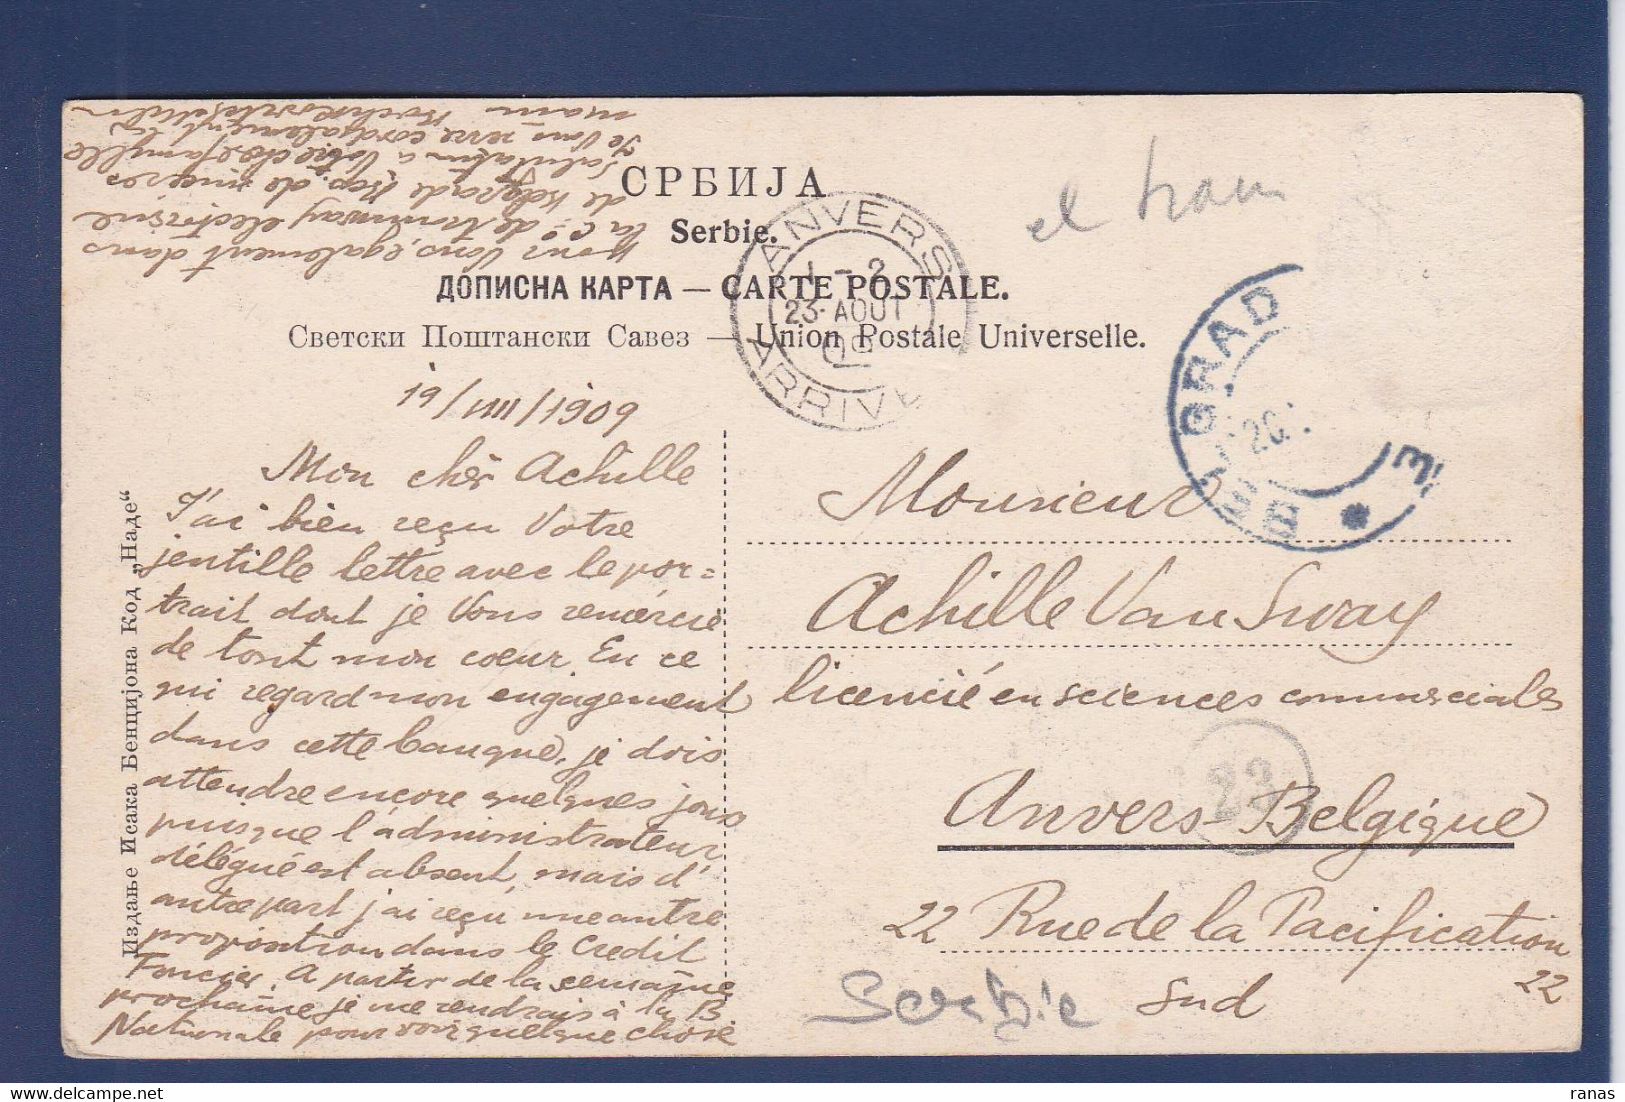 СРБИЈА
Serbie.
ДОПИСНА КАРТА — CARTE POSTALE.
Светски Поштански Савез — Union Postale Universelle.
ANVERS
1 - 2
23 AOUT
09
ARRIVÉE
el tram
19/VIII/1909
Mon cher Achille
J'ai bien reçu Votre
jentille lettre avec le por=
trait dont je Vous remercie
de tout mon coeur. En ce
qui regard mon engagement
dans cette banque, je dois
attendre encore quelques jours
puisque l'administrateur
délégué est absent, mais d'
autre part j'ai reçu une autre
proposition dans le Credit
Foncier. A partir de la semaine
prochaine, je me rendrais à la B
Nationale pour voir quelque chose
pour Vous, egalement dans
la Cie de tramway electrisine
de Belgrade. Rep. de sinceres
salutation a Votre chere famylle
Je Vous serre cordjalement la
main
Monsieur
Achille Van Sway
licencié en sciences commerciales
Anvers-Belgique
22 Rue de la Pacification
22
Sud
Serbie
23
Издање Исака Бенцијона Код „Наде“
ranas